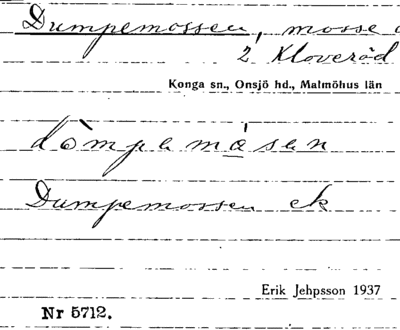 Dumpemossen, mosse
2 Kloveröd
Konga sn., Onsjö hd., Malmöhus län
dòmpemåsen
Dumpemossen ek
Erik Jehpsson 1937
Nr 5712.